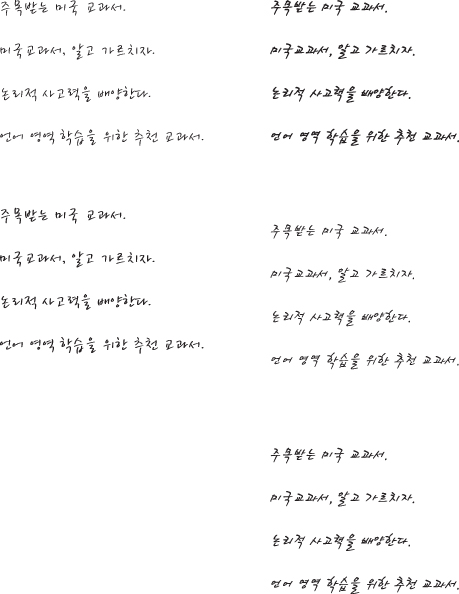 주목받는 미국 교과서.
미국교과서, 알고 가르치자.
논리적 사고력을 배양한다.
언어 영역 학습을 위한 추천 교과서.
주목받는 미국 교과서.
미국교과서, 알고 가르치자.
논리적 사고력을 배양한다.
언어 영역 학습을 위한 추천 교과서.
주목받는 미국 교과서.
미국교과서, 알고 가르치자.
논리적 사고력을 배양한다.
언어 영역 학습을 위한 추천 교과서.
주목받는 미국 교과서.
미국교과서, 알고 가르치자.
논리적 사고력을 배양한다.
언어 영역 학습을 위한 추천 교과서.
주목받는 미국 교과서.
미국교과서, 알고 가르치자.
논리적 사고력을 배양한다.
언어 영역 학습을 위한 추천 교과서.